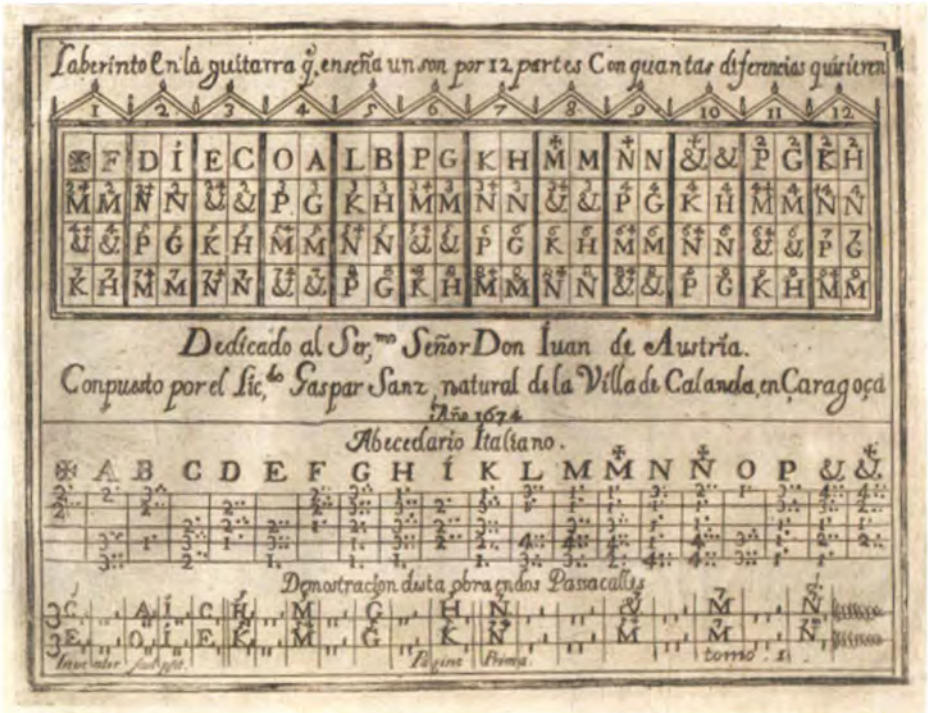 Laberinto En la guitarra q̃, enseña un son por 12 partes Con quantas diferencias quisieren
1 2 3 4 5 6 7 8 9 10 11 12
✠ F D Í E C O A L B P G K H M M N N & & P G K H
M M N N & & P G K H M M N N & & P G K H M M N N
& & P G K H M M N N & & P G K H M M N N & & P G
K H M M N N & & P G K H M M N N & & P G K H M M
Dedicado al Ser,mo Señor Don Íuan de Austria.
Conpuesto por el Lic,do Gaspar Sanz, natural de la Villa de Calanda, en Çaragoça
Año 1674
Abecedario Italiano.
✠ A B C D E F G H Í K L M M N N O P & &
Demostracion desta obra en dos Passacalles
C A Í C H M G H N & M N
E O Í E K M G K N M M N
Inventor sculpsit. Pagina Prima. tomo. 1.